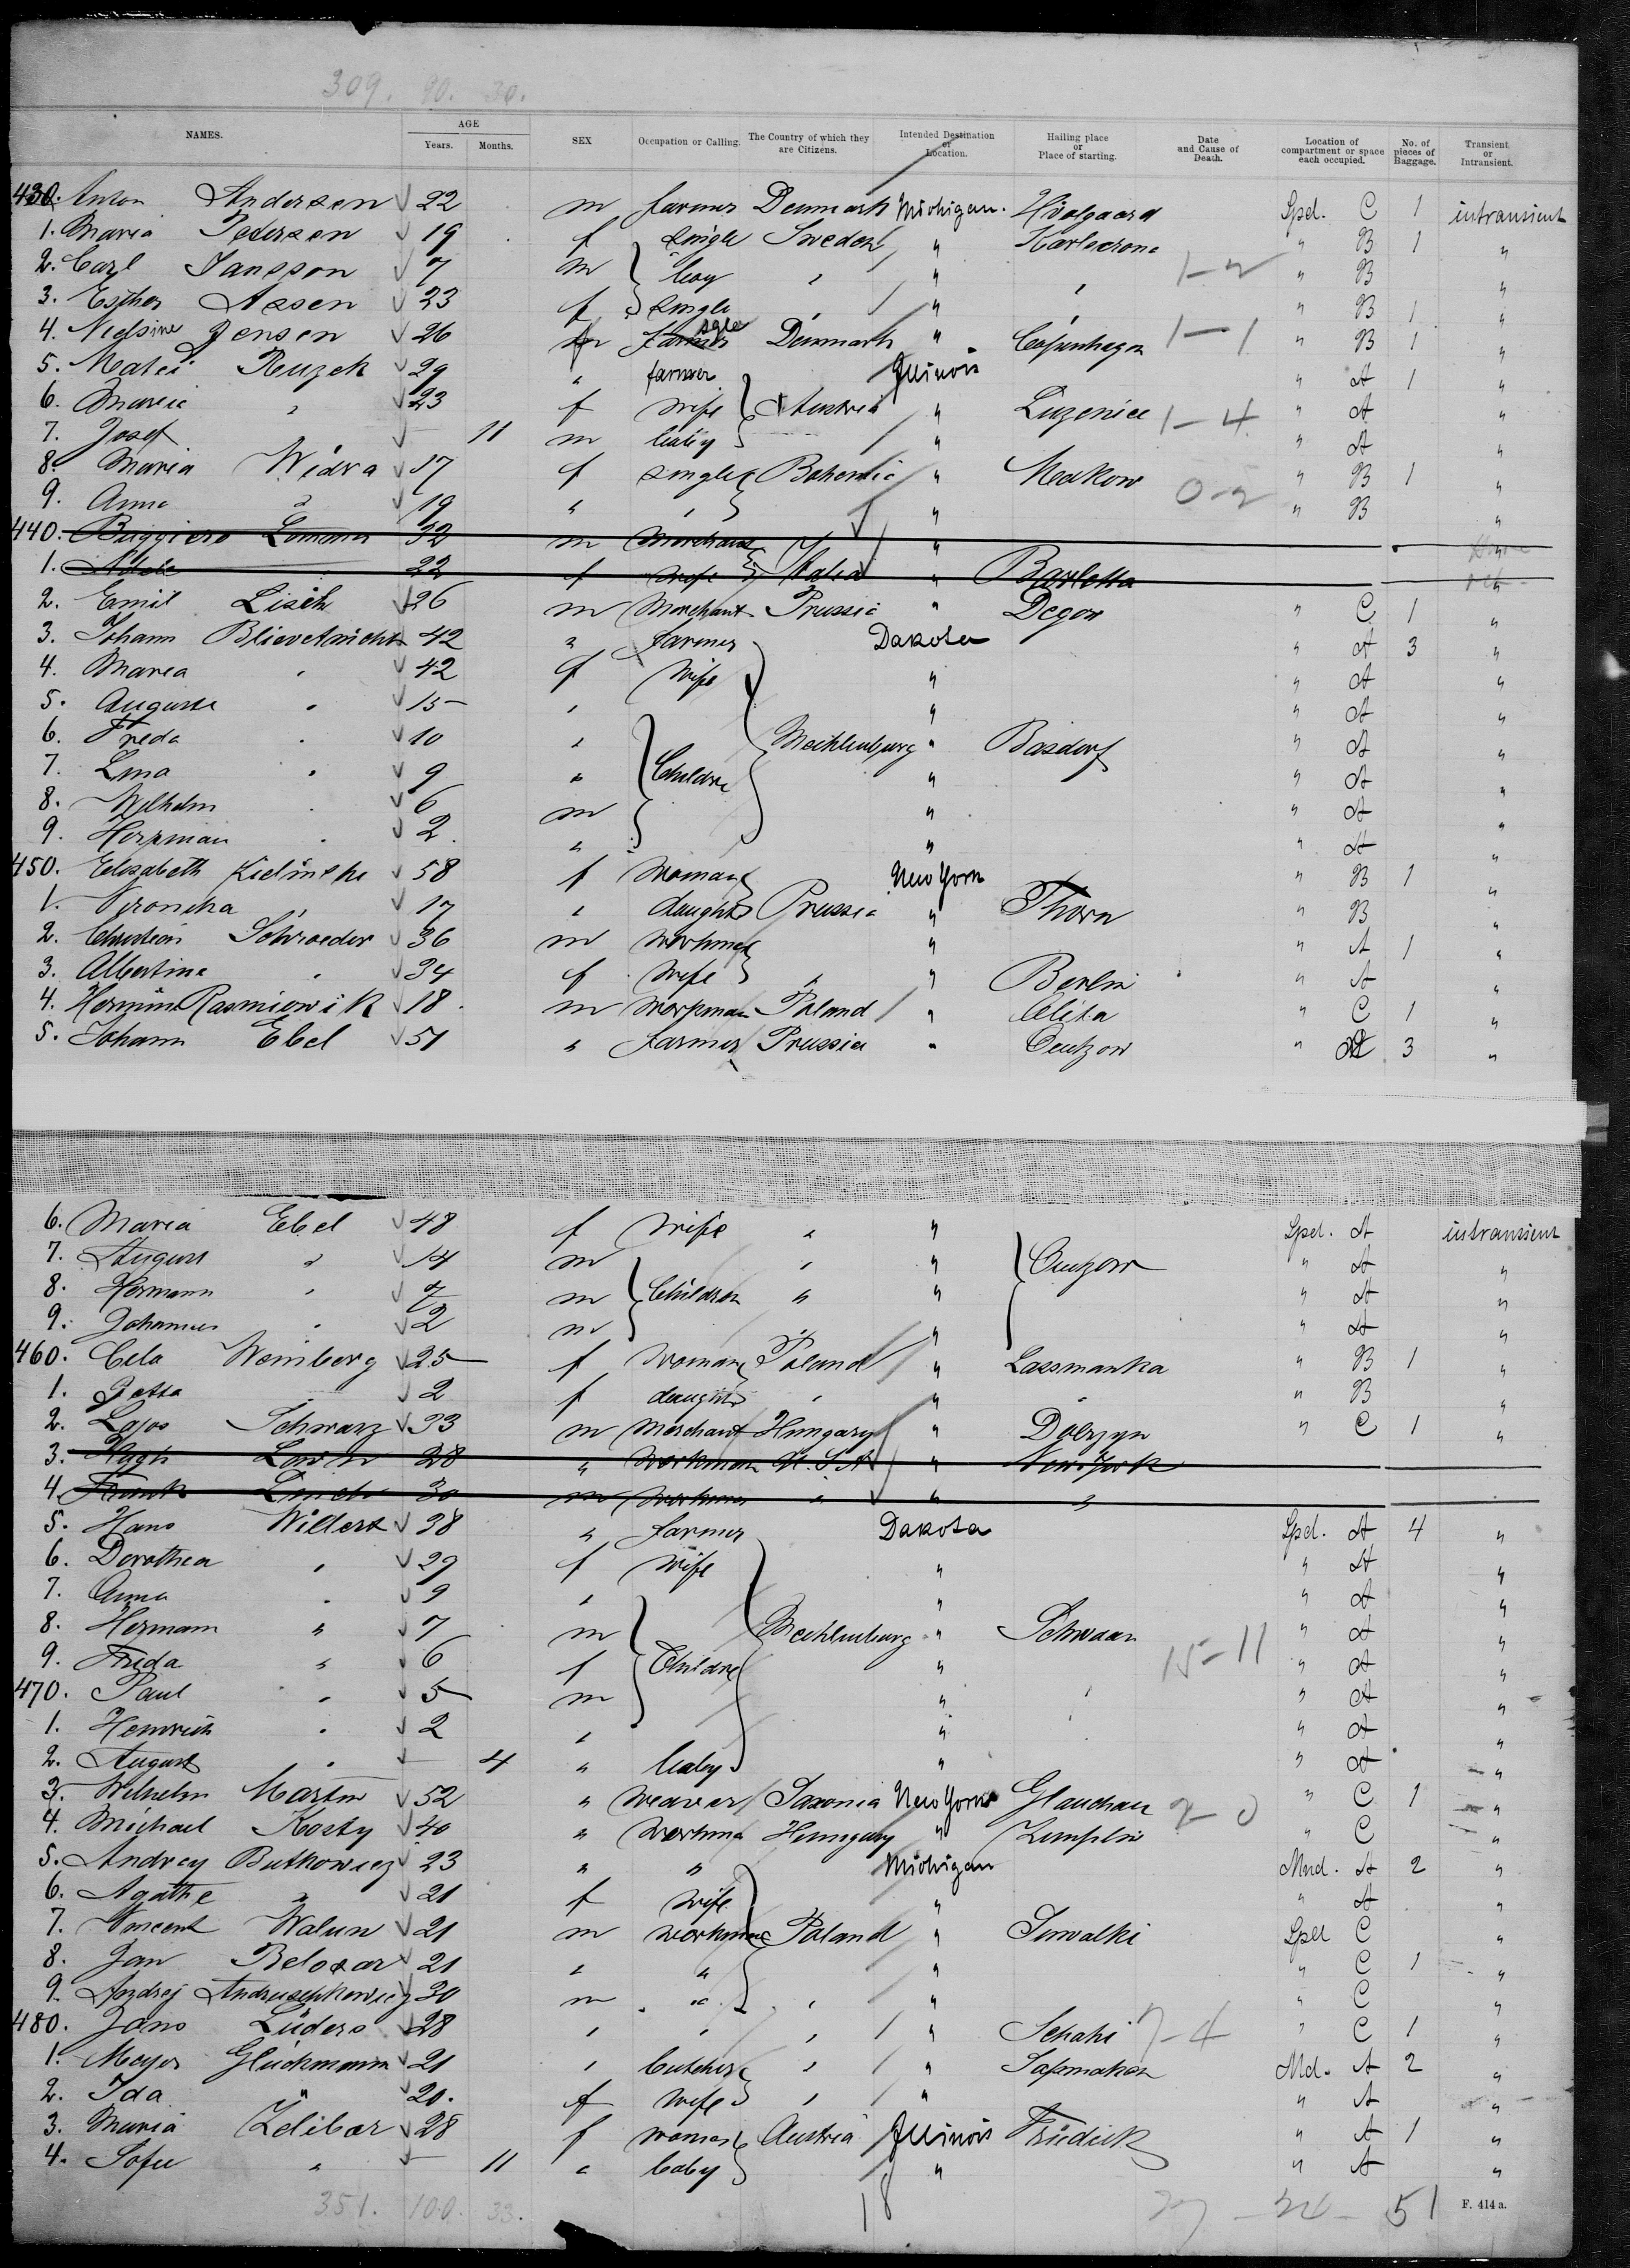 309. 90. 30.
NAMES. AGE Years. Months. SEX Occupation or Calling. The Country of which they are Citizens. Intended Destination or Location. Hailing place or Place of starting. Date and Cause of Death. Location of compartment or space each occupied. No. of pieces of Baggage. Transient or Intransient.
430. Anton Andersen 22 m farmer Denmark Michigan. Spd. C 1 intransient
1. Maria Pedersen 19 f single Sweden " Karlscrona " B 1 "
2. Carl Jansson 7 m boy " " " 1-2 " B "
3. Esther Assen 23 f single " " " " B 1 "
4. Nielsine Jensen 26 f sgle Denmark " Copenhagen 1-1 " B 1 "
5. Matei 29 " farmer Illinois " A 1 "
6. Maria " 23 f wife Austria " 1-4 " A "
7. Josef 11 m baby " " A "
8. Maria Widra 17 f single Bohemia " Makow " B 1 "
9. Anna " 19 " " " 0-2 " B "
440. Ruggiero 32 m merchant "
1. Adele 22 f wife Italia " Barletta
2. Emil Lisch 26 m Merchant Prussia " Degow " C 1 "
3. Johann 42 " farmer Dakota " A 3 "
4. Maria " 42 f wife " " A "
5. Auguste " 15 " " " A "
6. Freda " 10 " Mecklenburg " Basdorf " A "
7. Lina " 9 " Childre " " A "
8. Wilhelm " 6 m " " A "
9. Herrman " 2 " " " A "
450. Elisabeth 58 f woman New York " B 1 "
1. Veronika " 17 " daughter Prussia " Thorn " B "
2. Christian Schroeder 36 m workman " " A 1 "
3. Albertine " 34 f wife " " Berlin " A "
4. Rasmiowik 18 m workman Poland " Olita " C 1 "
5. Johann Ebel 51 " farmer Prussia " " A 3 "
6. Maria Ebel 48 f wife " " Spd. A intransient
7. August " 14 m " " " A "
8. Hermann " 7 m Children " " " A "
9. Johannes " 2 m " " A "
460. Cela Weinberg 25 f woman Poland " Lassmanka " B 1 "
1. Jetta " 2 f daughter " " " " B "
2. Lajos Schwarz 33 m Merchant Hungary " " C 1 "
3. Hugh 28 " workman U.S.A " New York
4. Frank 30 m workman " " "
5. Hans Willers 38 " farmer Dakota Spd. A 4 "
6. Dorothea " 29 f wife " " A "
7. Anna " 9 " " " A "
8. Hermann " 7 m Mecklenburg " Schwaan " A "
9. Frida " 6 f Childre " 15-11 " A "
470. Paul " 5 m " " " A "
1. Heinrich " 2 " " " A "
2. August " 4 " baby " " A "
3. Wilhelm Martin 52 " weaver Saxonia New York Glauchau " C 1 "
4. Michael Kosty 40 " Workma Hungary " Zemplin 2-0 " C "
5. Andrey Butkowicz 23 " " Michigan Mnd. A 2 "
6. Agathe " 21 f wife " " A "
7. Vincent Walun 21 m workman Poland " Suwalki Spd C "
8. Jan Belosar 21 " " " " C 1 "
9. Andrej 30 m " " " " C "
480. Jans Lüders 28 " " " " Schaki 7-4 " C 1 "
1. Meyer Glückmann 21 " butcher " " Md. A 2 "
2. Ida " 20. f wife " " " A "
3. Maria Zelibar 28 f woman Austria Illinois " A 1 "
4. Sofie " 11 " baby " " A "
351. 100. 33. 18 51 F. 414 a.